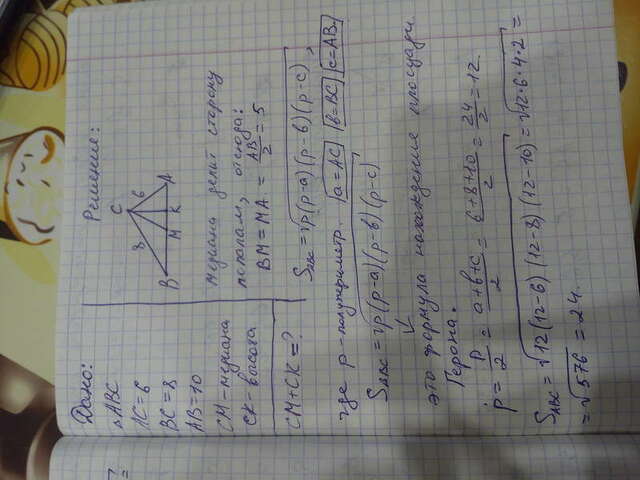 Дано:
△ABC
AC=6
BC=8
AB=10
CM-медиана
CK-высота
CM+CK=?
Решение:
C
8
6
B
M
K
A
медиана делит сторону
пополам, отсюда:
BM = MA = AB/2 = 5
S_ABC = √p(p-a)(p-b)(p-c),
где p-полупериметр. a=AC b=BC c=AB.
S_ABC = √p(p-a)(p-b)(p-c)
это формула нахождение площади
Герона.
p = p/2 = a+b+c/2 = 6+8+10/2 = 24/2 = 12.
S_ABC = √12(12-6)(12-8)(12-10) = √12·6·4·2 =
= √576 = 24.